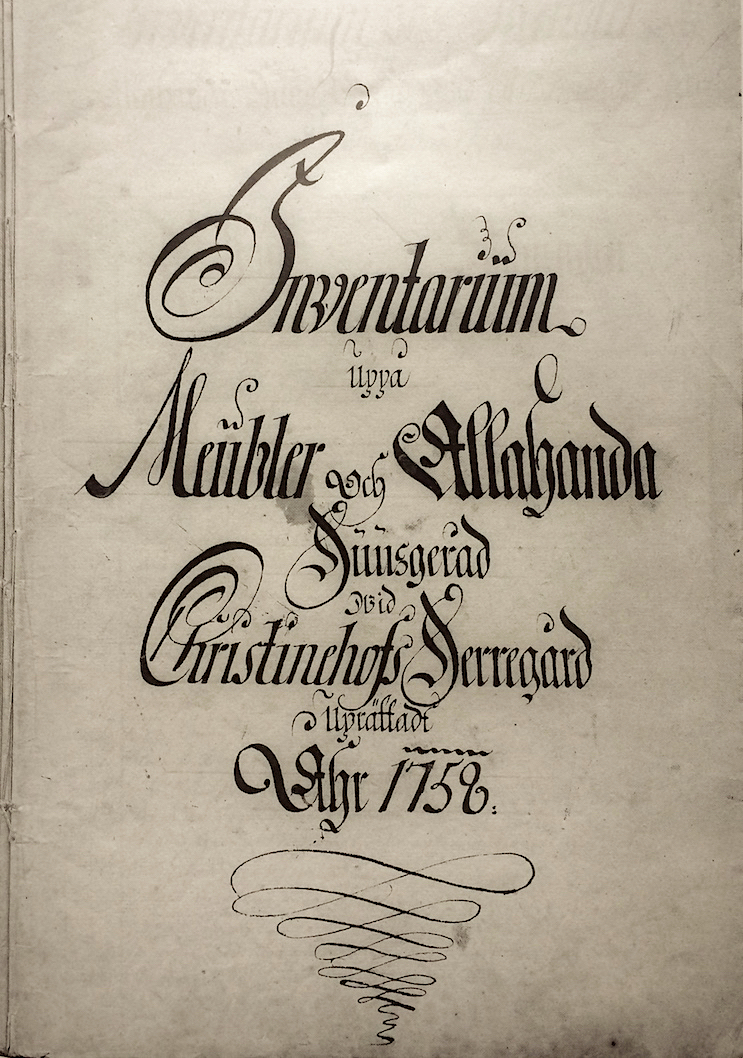 Inventarium
Uppå
Meubler och Allahanda
Huusgeråd
wid
Christinehofs Herregård
Uprättadt
Ahr 1758.